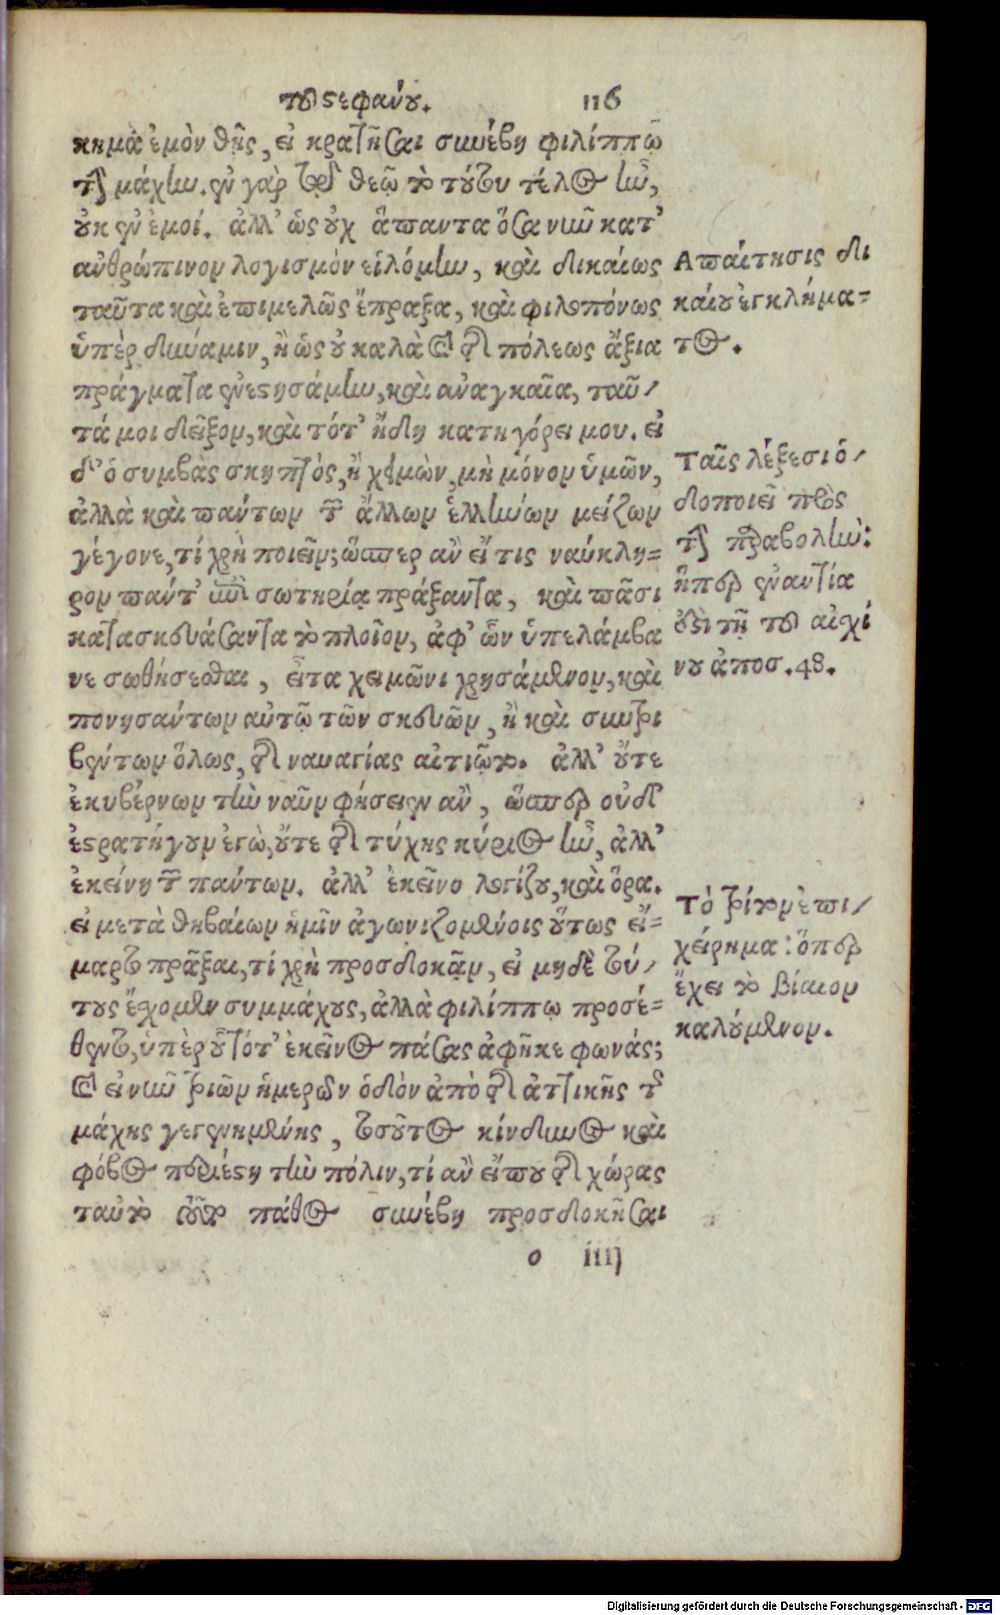 τοῦ στεφάνου. 116
κημα ἐμὸν θῇς, εἰ κρατῆσαι συνέβη φιλίππῳ
τῇ μάχῃ. ἐν γὰρ τῷ θεῷ τὸ τούτου τέλος ἦν,
οὐκ ἐν ἐμοί. ἀλλ' ὡς οὐχ ἅπαντα ὅσα νῦν κατ'
ἀνθρώπινον λογισμὸν εἱλόμην, καὶ δικαίως
ταῦτα καὶ ἐπιμελῶς ἔπραξα, καὶ φιλοπόνως
ὑπὲρ δύναμιν, ἢ ὡς οὐ καλὰ καὶ τῆς πόλεως ἄξια
πράγματα ἐνεστησάμην, καὶ ἀναγκαῖα, ταῦ/
τά μοι δεῖξον, καὶ τότ' ἤδη κατηγόρει μου. εἰ
δ' ὁ συμβὰς σκηπτὸς, ἢ χειμὼν, μὴ μόνον ὑμῶν,
ἀλλὰ καὶ πάντων τῶν ἄλλων ἑλλήνων μείζων
γέγονε, τί χρὴ ποιεῖν; ὥσπερ ἂν εἴ τις ναύκλη=
ρον πάντ' ἐπὶ σωτηρίᾳ πράξαντα, καὶ πᾶσι
κατασκευάσαντα τὸ πλοῖον, ἀφ' ὧν ὑπελάμβα
νε σωθήσεσθαι, εἶτα χειμῶνι χρησάμενον, καὶ
πονησάντων αὐτῷ τῶν σκευῶν, ἢ καὶ συντρι
βέντων ὅλως, τῆς ναυαγίας αἰτιῷτο. ἀλλ' οὔτε
ἐκυβέρνων τὴν ναῦν φήσειεν ἂν, ὥσπερ οὐδ'
ἐστρατήγουν ἐγὼ, οὔτε τῆς τύχης κύριος ἦν, ἀλλ'
ἐκείνη τῶν πάντων. ἀλλ' ἐκεῖνο λογίζου, καὶ ὅρα.
εἰ μετὰ θηβαίων ἡμῖν ἀγωνιζομένοις οὕτως εἵ=
μαρτο πρᾶξαι, τί χρὴ προσδοκᾷν, εἰ μηδὲ τού/
τους ἔχομεν συμμάχους, ἀλλὰ φιλίππῳ προσέ=
θεντο, ὑπὲρ οὗ τότ' ἐκεῖνος πάσας ἀφῆκε φωνάς;
καὶ εἰ νῦν τριῶν ἡμερῶν ὁδὸν ἀπὸ τῆς ἀττικῆς τῆς
μάχης γεγενημένης, τοσοῦτος κίνδυνος καὶ
φόβος περιέστη τὴν πόλιν, τί ἂν εἴ που τῆς χώρας
ταὐτὸ τοῦτο πάθος συνέβη προσδοκῆσαι
ο iiij
Απαίτησις δι
καίου ἐγκλήμα=
τος.
Ταῖς λέξεσι ὁ/
δοποιεῖ πρὸς
τὴν παραβολὴν:
ἥπερ ἐναντία
ἐστὶ τῇ τοῦ αἰσχί
νου ἀποσ. 48.
Τὸ τρίτον ἐπι/
χείρημα: ὅπερ
ἔχει τὸ βίαιον
καλούμενον.
Digitalisierung gefördert durch die Deutsche Forschungsgemeinschaft - DFG